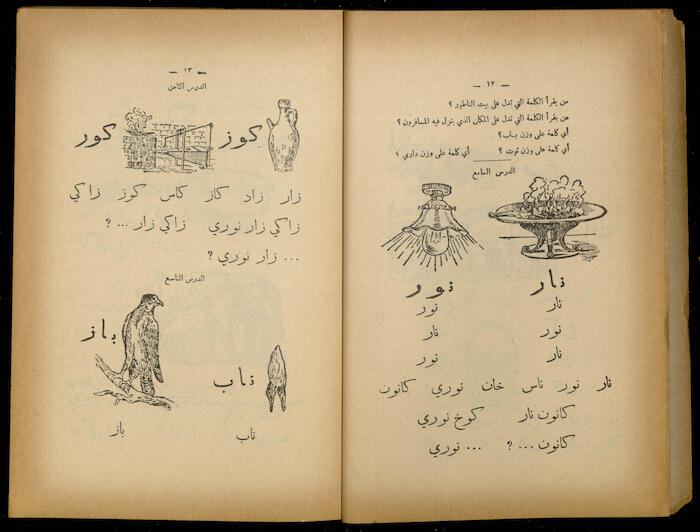 — ١٢ —
من يقرأ الكلمة التي تدل على بيت الناطور ؟
من يقرأ الكلمة التي تدل على المكان الذي ينزل فيه المسافرون ؟
أي كلمة على وزن باب ؟
أي كلمة على وزن توت ؟ أي كلمة على وزن داري ؟
الدرس السابع
نار نور
نار نور
نور نار
نار نور
نار نور ناس خان نوري كانون
كانون نار كوخ نوري
كانون ... ؟ ... نوري
— ١٣ —
الدرس الثامن
كوز كور
زار زاد كاز كاس كوز زاكي
زاكي زار نوري زاكي زار ... ؟
... زار نوري ؟
الدرس التاسع
باز
ناب
ناب باز